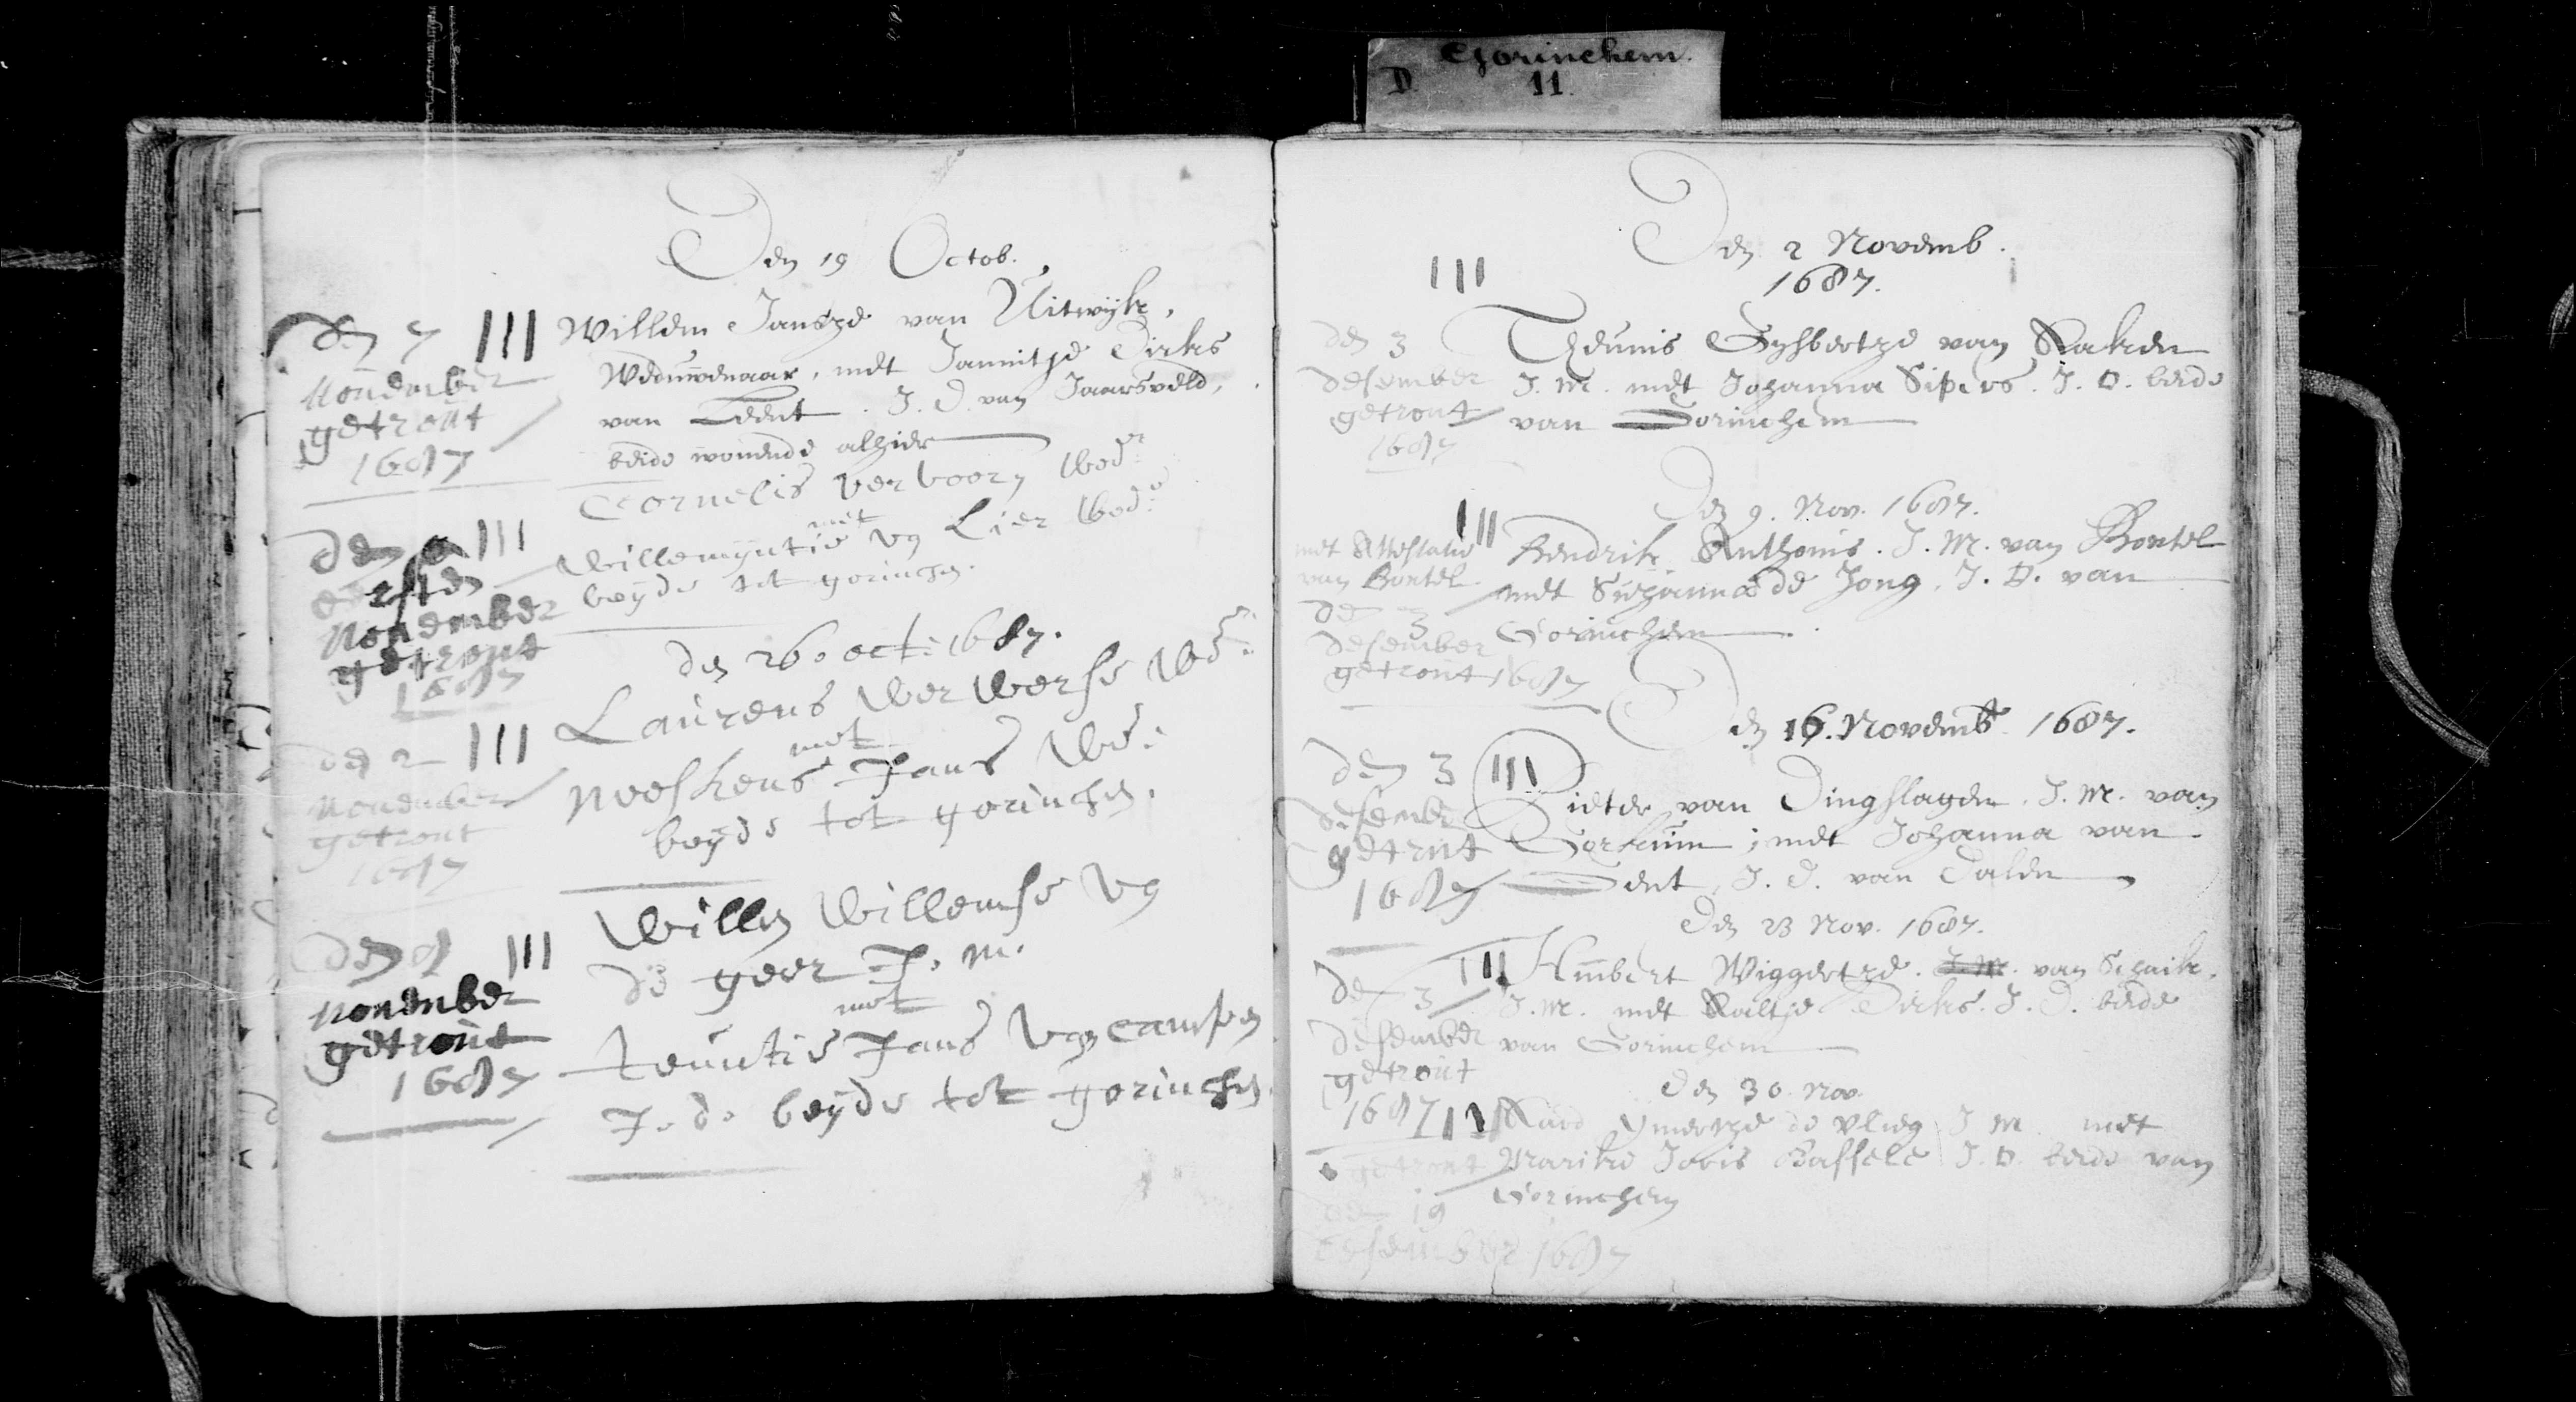 Gorinchem.
D 11.
Den 19 Octob.
den 7
november
getrout
1687
III
Willem Jansze van Uitwijk,
Weduwenaar, met Jannitje Dirks
van Leent. J. D. van Jaarsveld,
beide wonende alhier
den
eersten
november
getrout
1687
III
Cornelis Vervoorn Wedr
met
Willemijntie vn Lier Wede
beyde tot gorinchen.
den 26 oct: 1687.
den 2
november
getrout
1687
III
Laurens Verwerse Wr:
met
neeskens Jans We:
beyde tot gorinchen.
den 9
november
getrout
1687
III
Willen Willemse vn
de geer J. m.
met
teuntie Jans van campen
J. d. beyde tot gorinchen.
Den 2 Novemb.
1687.
III
den 3
desember
getrout
1687
Theunis Gysbertze van Aaken
J. M. met Johanna Sipers. J. D. beide
van Gorinchem
Den 9. Nov. 1687.
III
met Attestatie
van Boxtel.
den 3
desember
getrout 1687
Hendrik Anthonis. J. M. van Boxtel
met Susanna de Jong. J. D. van
Gorinchem
Den 16. Novemb. 1687.
den 3
desember
getrut
1687
III
Pieter van Dingslagen. J. M. van
Gorkum; met Johanna van
Gent, J. D. van Dalen
Den 23 Nov. 1687.
den 3
desember
getrout
1687
III
Himbert Wiggertze. J. M. van Schaik.
J. M. met Aaltje Dirks. J. D. beide
van Gorinchem
Den 30. Nov.
III
getrout
den 19
desember 1687
Aard de Vlieg J M met
Marike Joris J. D. beide van
Gorinchem